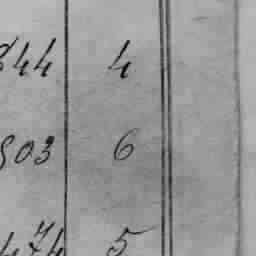 844 4
903 6
474 5